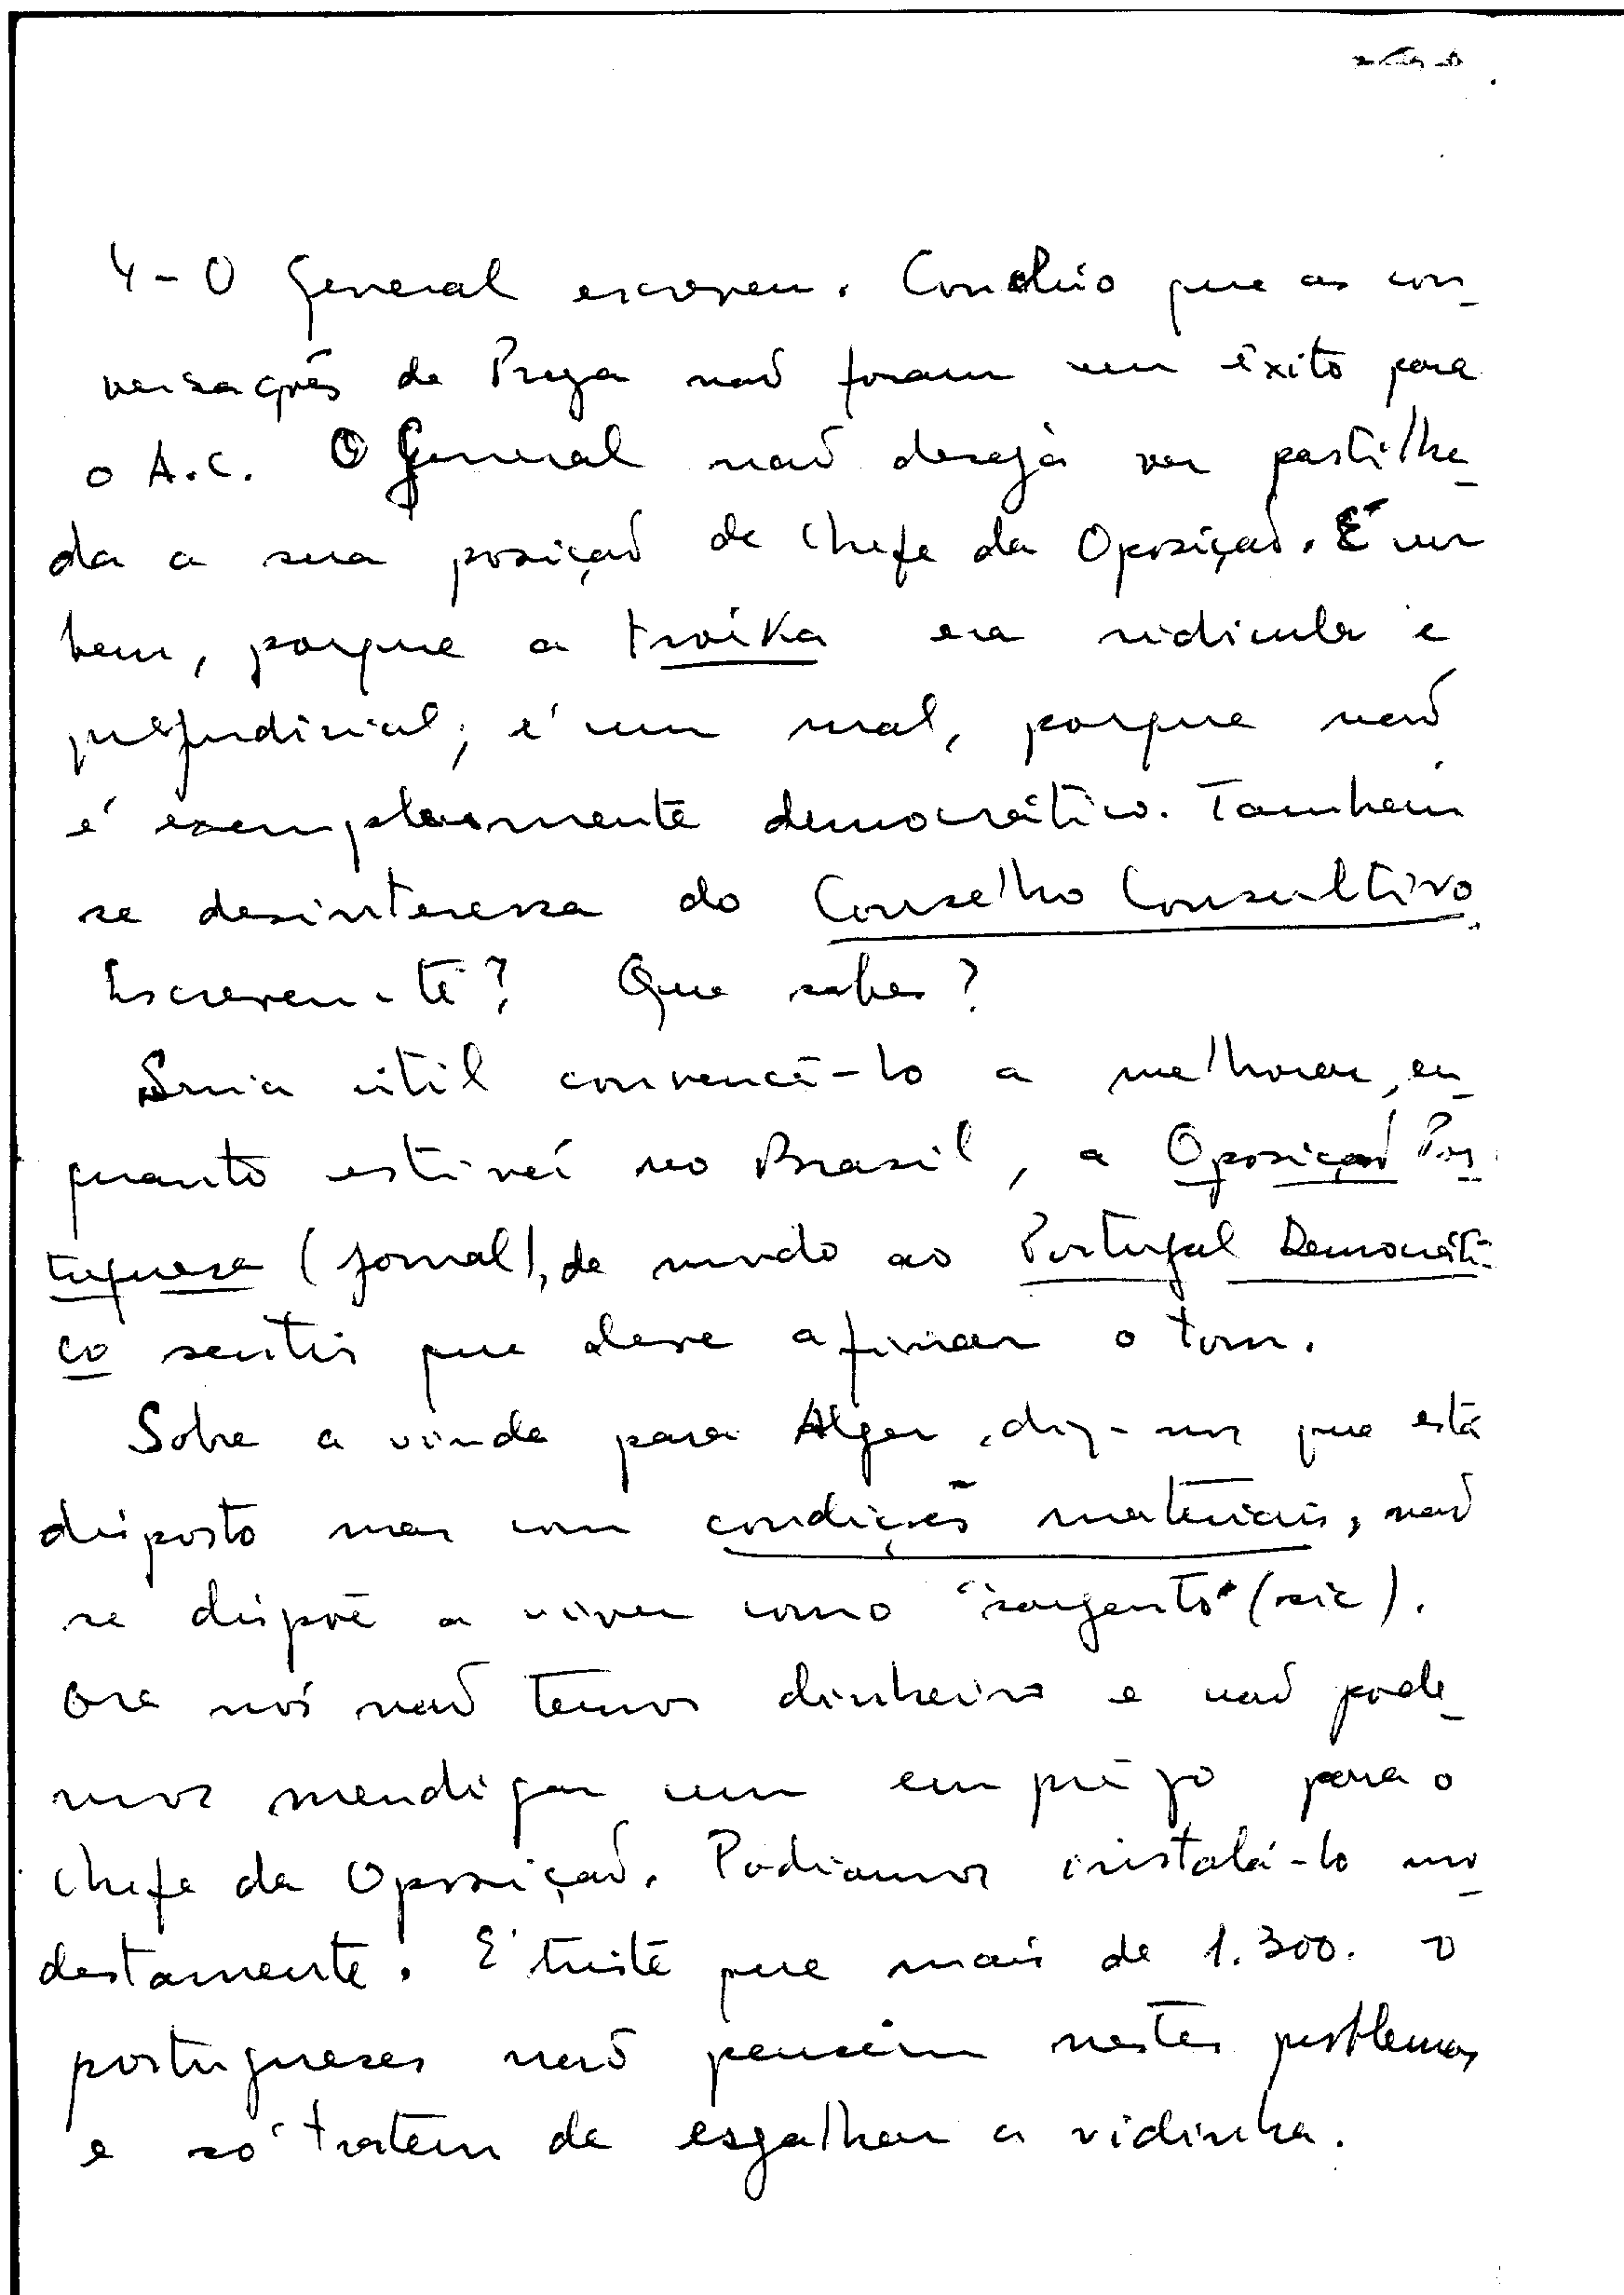 4 - O General escreveu. Concluio que as con-
versações de Praga não foram um êxito para
o A.C. O General não deseja ver partilha-
da a sua posição de chefe da Oposição. É um
bem, porque a troïka era ridicula e
prejudicial; é um mal, porque não
é exemplarmente democrático. Também
se desinteressa do Conselho Consultivo.
Escreveu-te? Que sabes?
Seria útil convencê-lo a melhorar, en-
quanto estivei no Brasil, a Oposição Por-
tuguesa (jornal), de modo ao Portugal Democráti-
co sentir que deve afinar o tom.
Sobre a vinda para Alger, diz-nos que está
disposto mas com condições materiais, não
se dispõe a viver como "sargento" (sic).
Ora nós não temos dinheiro e não pode-
mos mendigar um emprêgo para o
chefe da Oposição. Podiamos instalá-lo mo-
destamente. É triste que mais de 1.300.
portugueses não pensem nestes problemas
e só tratem de esgalhar a vidinha.